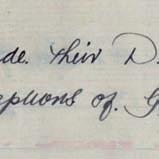 de. their D
eptions of. G